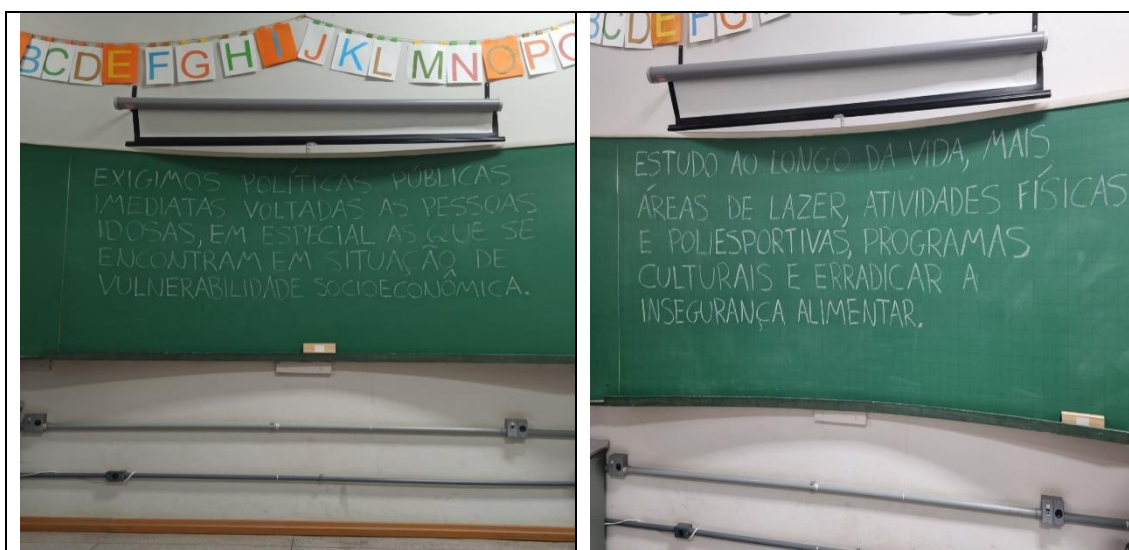 BCDEFGHIJKLMNOPQ
EXIGIMOS POLÍTICAS PÚBLICAS
IMEDIATAS VOLTADAS AS PESSOAS
IDOSAS, EM ESPECIAL AS QUE SE
ENCONTRAM EM SITUAÇÃO DE
VULNERABILIDADE SOCIOECONÔMICA.
CDEFG
ESTUDO AO LONGO DA VIDA, MAIS
ÁREAS DE LAZER, ATIVIDADES FÍSICAS
E POLIESPORTIVAS, PROGRAMAS
CULTURAIS E ERRADICAR A
INSEGURANÇA ALIMENTAR.